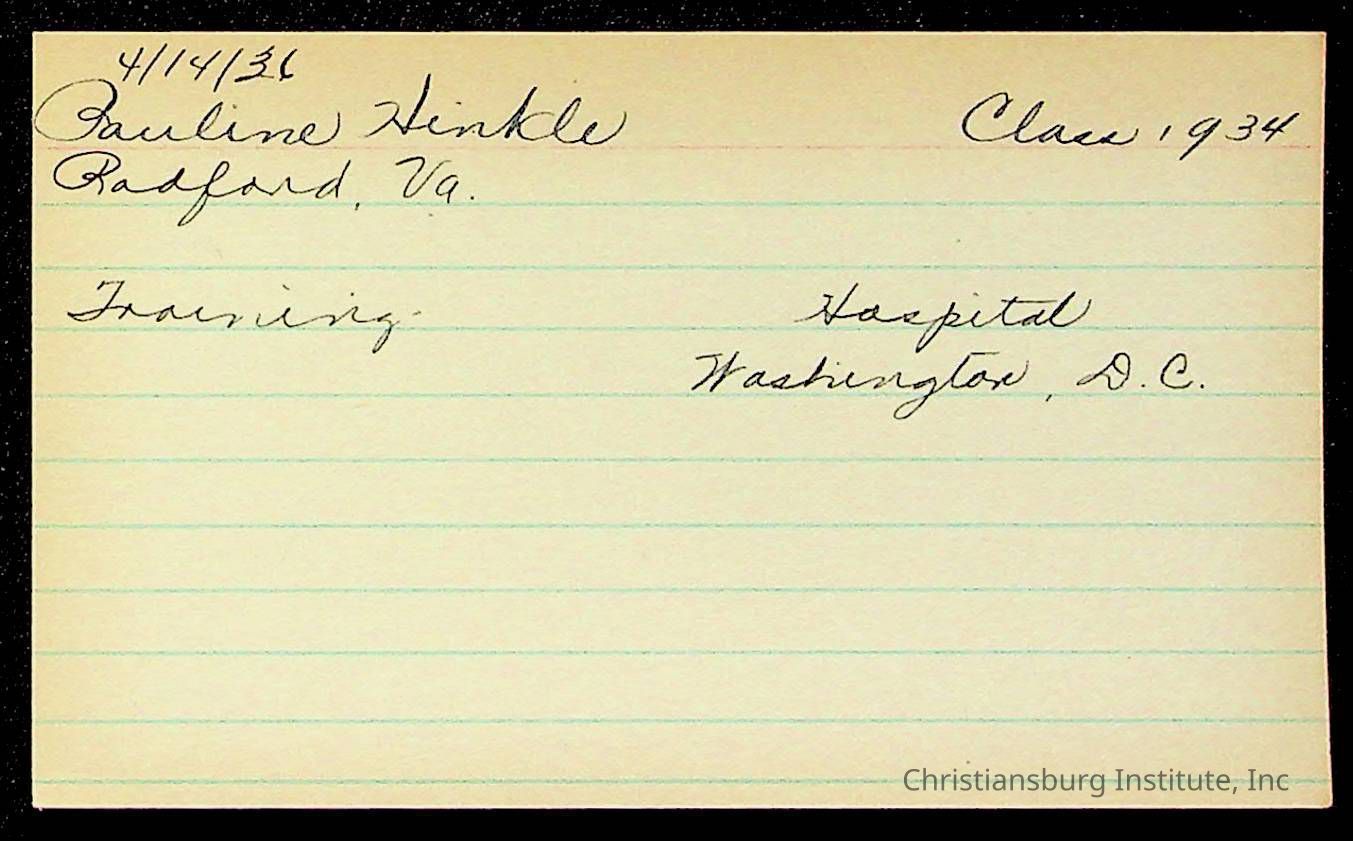 4/14/36
Pauline Hinkle Class 1934
Radford, Va.
Training Hospital
Washington, D.C.
Christiansburg Institute, Inc